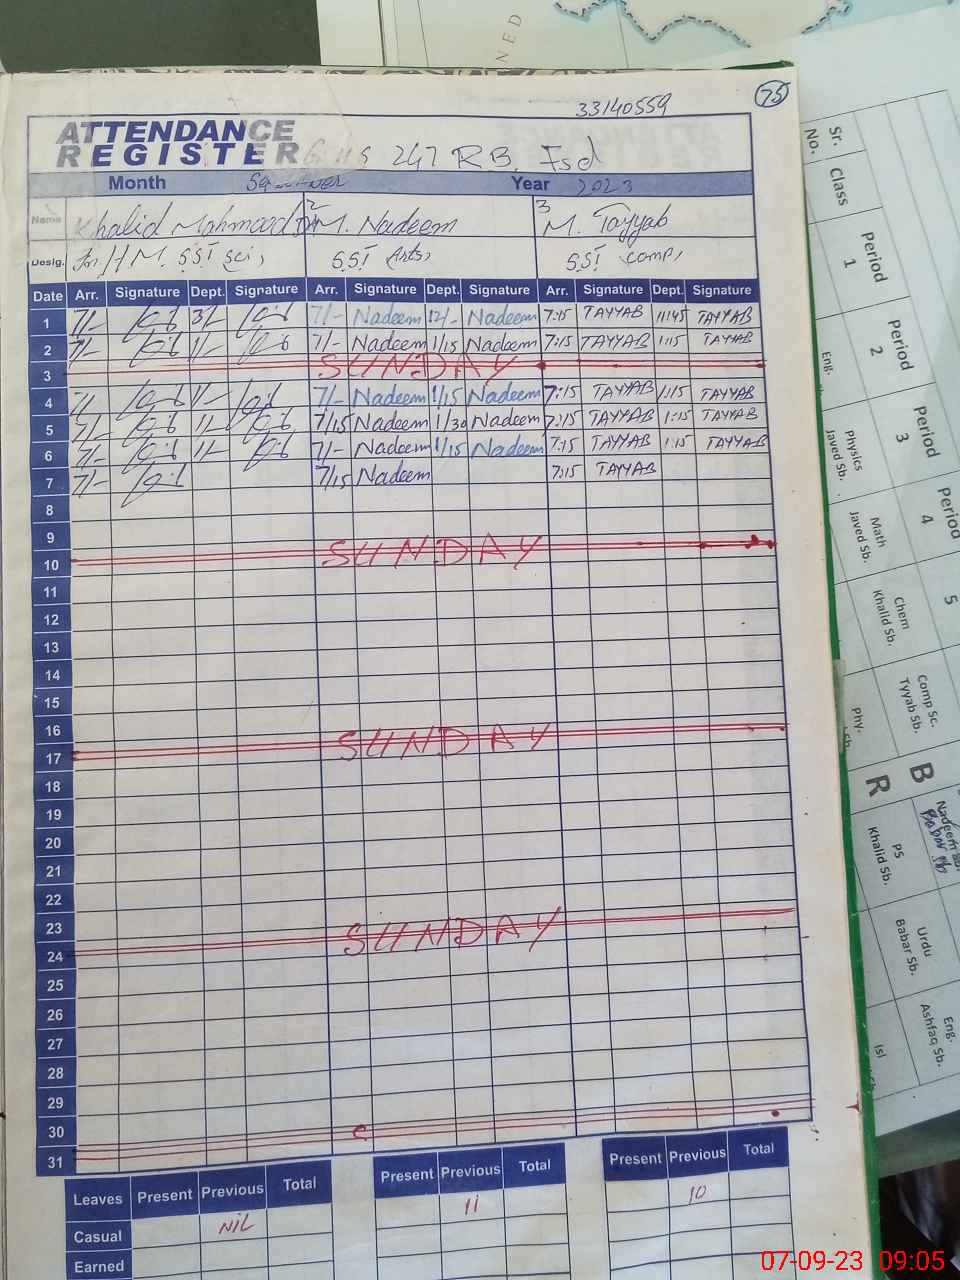 NED
33140559
75
ATTENDANCE
REGISTER
GHS 247 RB, Fsd
Month Year 2023
Name Khalid Mahmood 2 M. Nadeem 3 M. Tayyab
Desig. H.M. SST Sci, SST Arts, SST Comp,
Date Arr. Signature Dept. Signature Arr. Signature Dept. Signature Arr. Signature Dept. Signature
1 7/- 7/- Nadeem 12/- Nadeem 7:15 TAYYAB 11:45 TAYYAB
2 7/- 1/- 7/- Nadeem 1/15 Nadeem 7:15 TAYYAB 1:15 TAYYAB
3 SUNDAY
4 7/- 1/- 7/- Nadeem 1/15 Nadeem 7:15 TAYYAB 1:15 TAYYAB
5 7/- 1/- 7/15 Nadeem 1/30 Nadeem 7:15 TAYYAB 1:15 TAYYAB
6 7/- 1/- 7/- Nadeem 1/15 Nadeem 7:15 TAYYAB 1:15 TAYYAB
7 7/- 7/15 Nadeem 7:15 TAYYAB
8
9
10 SUNDAY
11
12
13
14
15
16
17 SUNDAY
18
19
20
21
22
23
24 SUNDAY
25
26
27
28
29
30
31
Leaves Present Previous Total Present Previous Total Present Previous Total
Casual NIL 11 10
Earned
Sr. No. Class Period 1 Period 2 Period 3 Period 4 5
Eng.
Physics Javed Sb.
Math Javed Sb.
Chem Khalid Sb.
Comp Sc. Tyyab Sb.
Phy.
B
R
Nadeem Sb.
Babar Sb
PS Khalid Sb.
Urdu Babar Sb.
Eng. Ashfaq Sb.
Isl
07-09-23 09:05